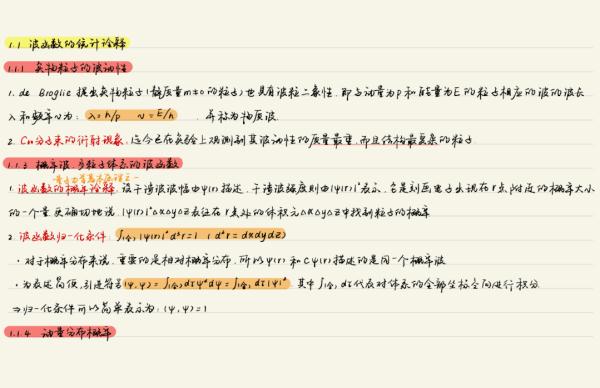 1.1 波函数的统计诠释
1.1.1 实物粒子的波动性
1. de Broglie 提出实物粒子(静质量m≠0的粒子)也具有波粒二象性, 即与动量为p和能量为E的粒子相应的波的波长
λ和频率ν为: λ=h/p ν=E/h , 并称为物质波.
2. C60分子束的衍射现象, 迄今已在实验上观测到其波动性的质量最重, 而且结构最复杂的粒子
1.1.3 概率波, 多粒子体系的波函数
量子力学基本原理之一
1. 波函数的概率诠释, 设干涉波波幅由ψ(r)描述, 干涉波强度则由|ψ(r)|²表示, 它是刻画电子出现在r点附近的概率大小
的一个量. 更确切地说, |ψ(r)|²ΔxΔyΔz表征在r点处的体积元ΔxΔyΔz中找到粒子的概率
2. 波函数归一化条件: ∫(全)|ψ(r)|²d³r=1 (d³r=dxdydz)
· 对于概率分布来说, 重要的是相对概率分布, 所以ψ(r)和Cψ(r)描述的是同一个概率波
· 为表述简便, 引进符号(ψ,ψ)=∫(全)dτψ*dψ=∫(全)dτ|ψ|², 其中∫(全)dτ代表对体系的全部坐标空间进行积分
⇒归一化条件可以简单表示为: (ψ,ψ)=1
1.1.4 动量分布概率